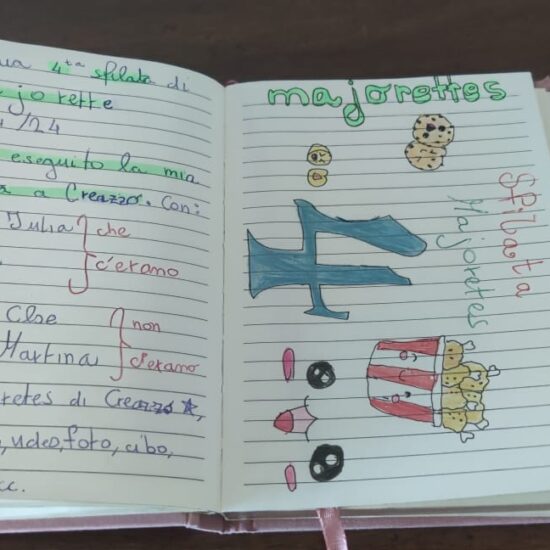 ua 4ta sfilata di
jorette
/24
eseguito la mia
a Creazzo. Con:
Julia } che
c'erano
Cloe } non
Martina } c'erano
retes di Creazzo,
video, foto, cibo,
cc.
majorettes
4
Sfilata
Majorettes